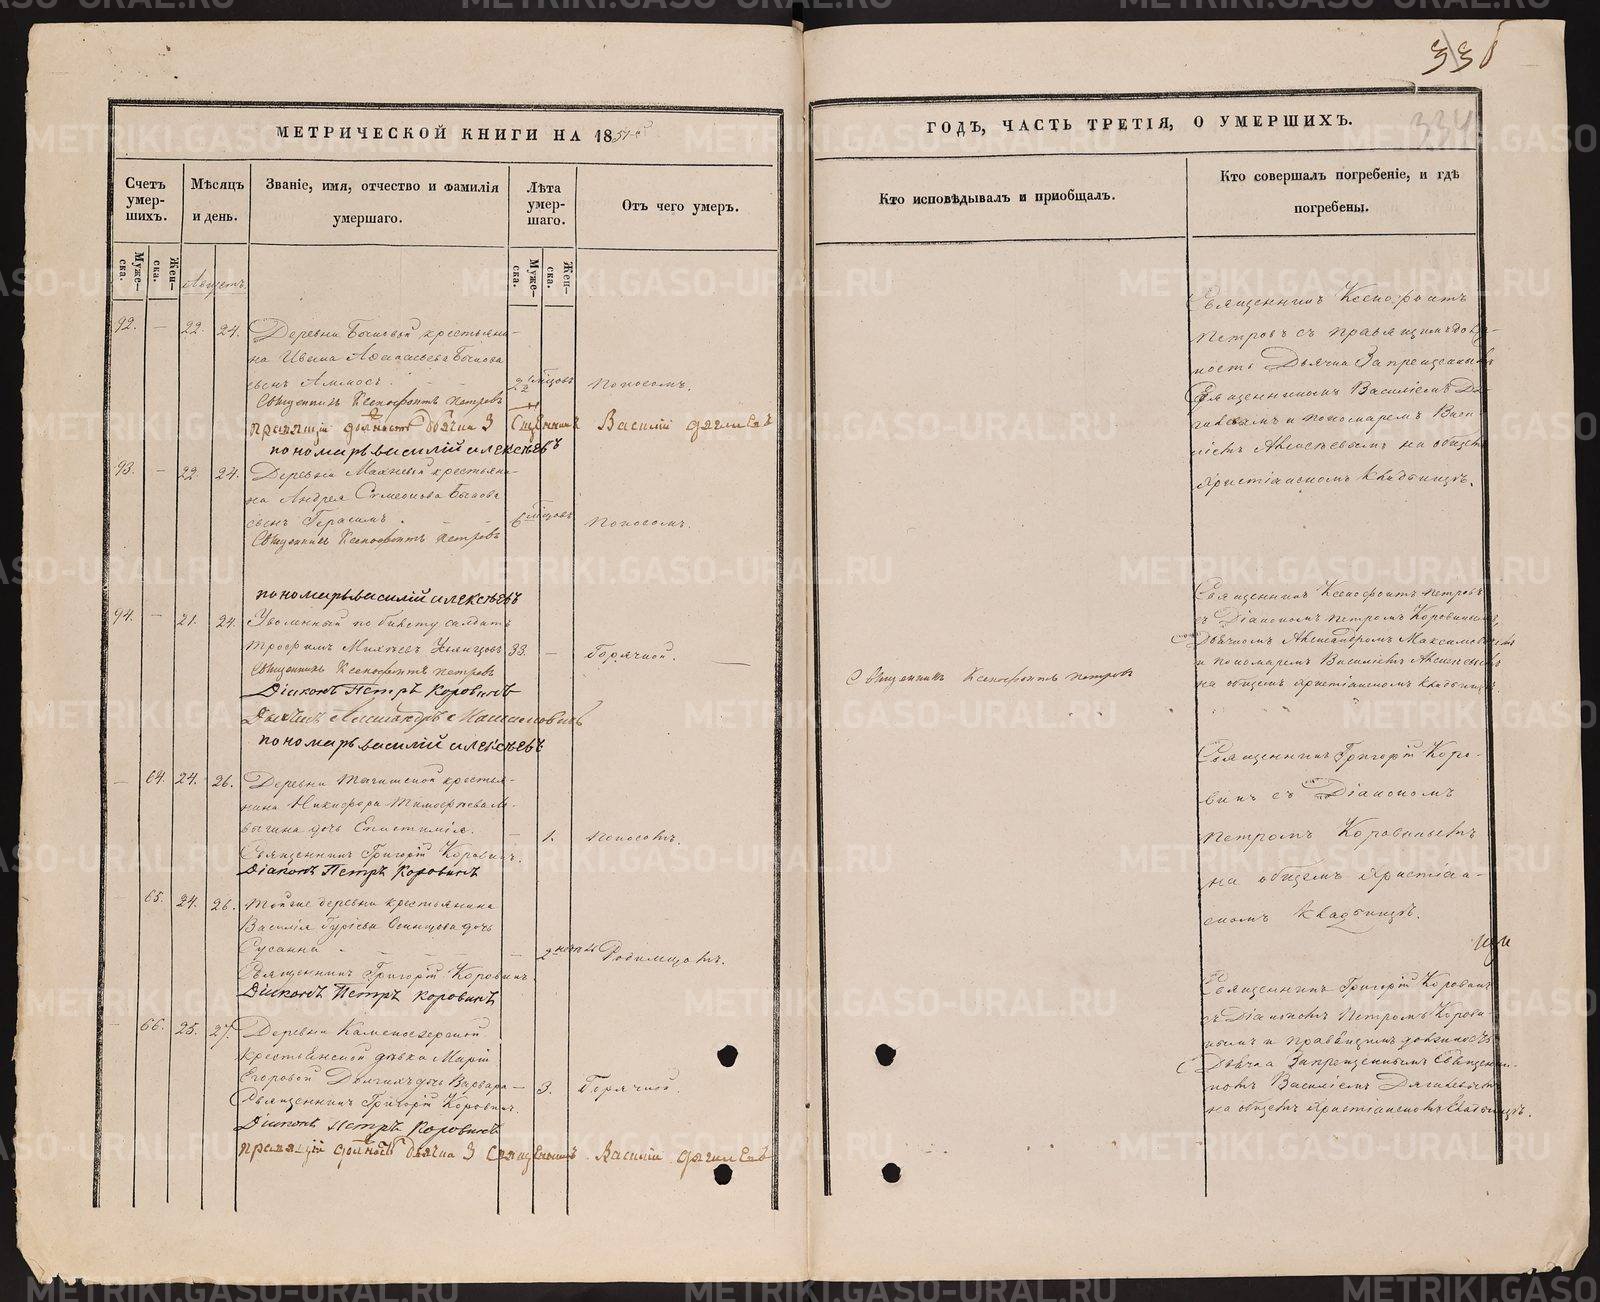 335
334
МЕТРИЧЕСКОЙ КНИГИ НА 1851
ГОДЪ, ЧАСТЬ ТРЕТІЯ, О УМЕРШИХЪ.
Счетъ умер-шихъ.
Мѣсяцъ и день.
Званіе, имя, отчество и фамилія умершаго.
Лѣта умер-шаго.
Отъ чего умеръ.
Кто исповѣдывалъ и пріобщалъ.
Кто совершалъ погребеніе, и гдѣ погребены.
Муже-ска.
Жен-ска.
Муже-ска.
Жен-ска.
Августъ
92. – 22. 24. Деревни крестьяни-
на Ивана
сынъ 2 мѣсяцовъ Поносомъ.
Священникъ Ксенофонтъ Петровъ
правящій должность дьячка З Священникъ Василій Дягилевъ
пономарь василій алексѣевъ
93. – 22. 24. Деревни Махневой крестьяни-
на Андрея Симеонова
сынъ Герасимъ. 6 мѣсяцовъ Поносомъ.
Священникъ Ксенофонтъ Петровъ
пономарь василій алексѣевъ
94. – 21. 24. Уволенный по билету солдатъ
Трофимъ 33. – Горячкой. –
Священникъ Ксенофонтъ Петровъ
Діаконъ Петръ Коровинъ
Дьячекъ Александръ Максимовичь
пономарь василій алексѣевъ
– 64. 24. 26. Деревни крестья-
нина Никифора
дочь Епистимія. – 1. Поносомъ.
Священникъ Григорій Коровинъ.
Діаконъ Петръ Коровинъ
65. 24. 26. Тойже деревни крестьянина
Василія дочь
Сусанна – 2 Родимцомъ.
Священникъ Григорій Коровинъ.
Діаконъ Петръ Коровинъ
66. 25. 27. Деревни
крестьянской дѣвки Маріи
Егоровой дочь Варвара – 3. Горячкой
Священникъ Григорій Коровинъ.
Діаконъ Петръ Коровинъ
правящій должность дьячка З Священникъ Василій Дягилевъ
Священникъ Ксенофонтъ Петровъ
Священникъ Ксенофонтъ
Петровъ съ правящимъ долж-
ность Дьячка Запрещеннымъ
Священникомъ Василіемъ Дя-
гилевымъ и пономаремъ Васи-
ліемъ Алексѣевымъ на общемъ
христіанскомъ кладбищѣ.
Священникъ Ксенофонтъ Петровъ
съ Діакономъ Петромъ Коровинымъ,
Дьячкомъ Александромъ Максимовичемъ
и пономаремъ Василіемъ Алексѣевымъ
на общемъ христіанскомъ кладбищѣ.
Священникъ Григорій Коро-
винъ съ Діакономъ
Петромъ Коровинымъ
на общемъ христіан-
скомъ кладбищѣ.
Священникъ Григорій Коровинъ
съ Діакономъ Петромъ Корови-
нымъ и правящимъ должность
Дьячка Запрещеннымъ Священни-
комъ Василіемъ Дягилевымъ
на общемъ христіанскомъ кладбищѣ.
METRIKI.GASO-URAL.RU